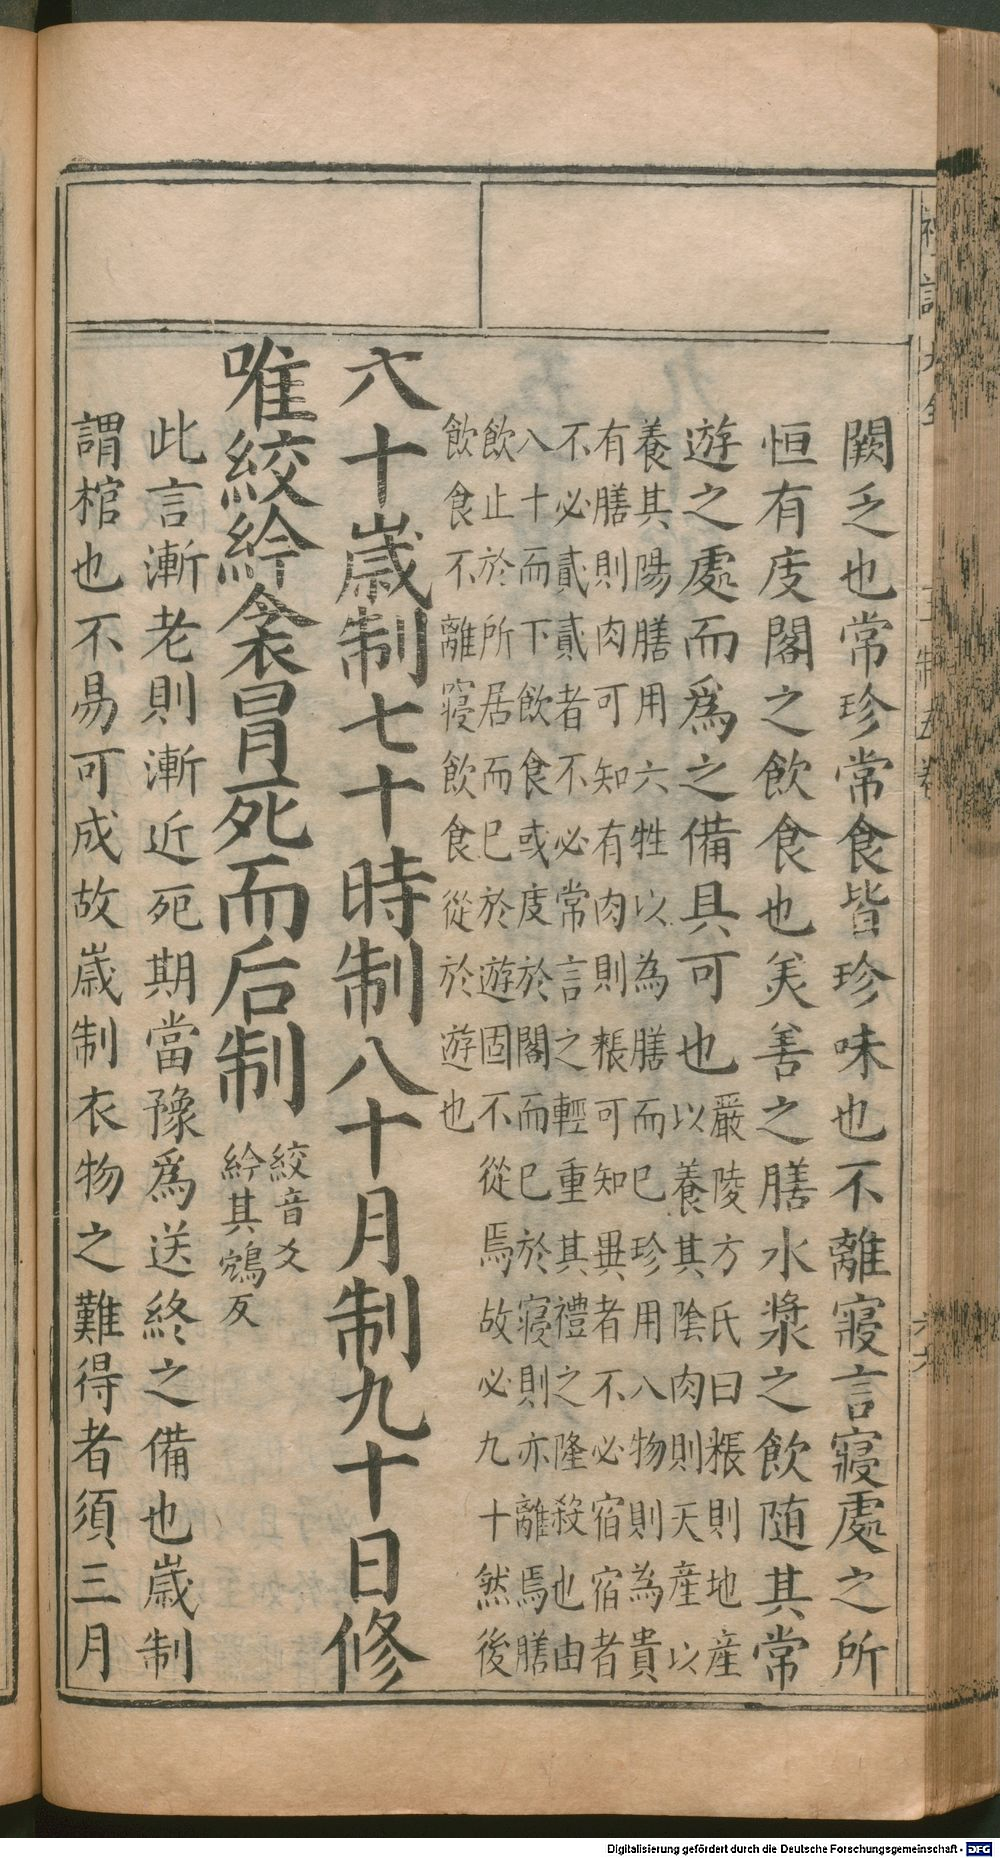 闕乏也常珍常食皆珍味也不離寢言寢處之所
恒有庋閣之飲食也美善之膳水漿之飲随其常
遊之處而爲之備具可也
嚴陵方氏曰粻則地産
以養其陰肉則天産以
養其陽膳用六牲以為膳而已珍用八物則為貴
有膳則肉可知有肉則粻可知異者不必宿宿者
不必貳貳者不必常言之輕重其禮之隆殺也由
八十而下飲食或庋於閣而已於寢則亦離焉膳
飲止於所居而已於遊固不從焉故必九十然後
飲食不離寢飲食從於遊也
六十歲制七十時制八十月制九十日修
唯絞紟衾冒死而后制
絞音爻
紟其鴆反
此言漸老則漸近死期當豫爲送終之備也歲制
謂棺也不易可成故歲制衣物之難得者須三月
Digitalisierung gefördert durch die Deutsche Forschungsgemeinschaft - DFG